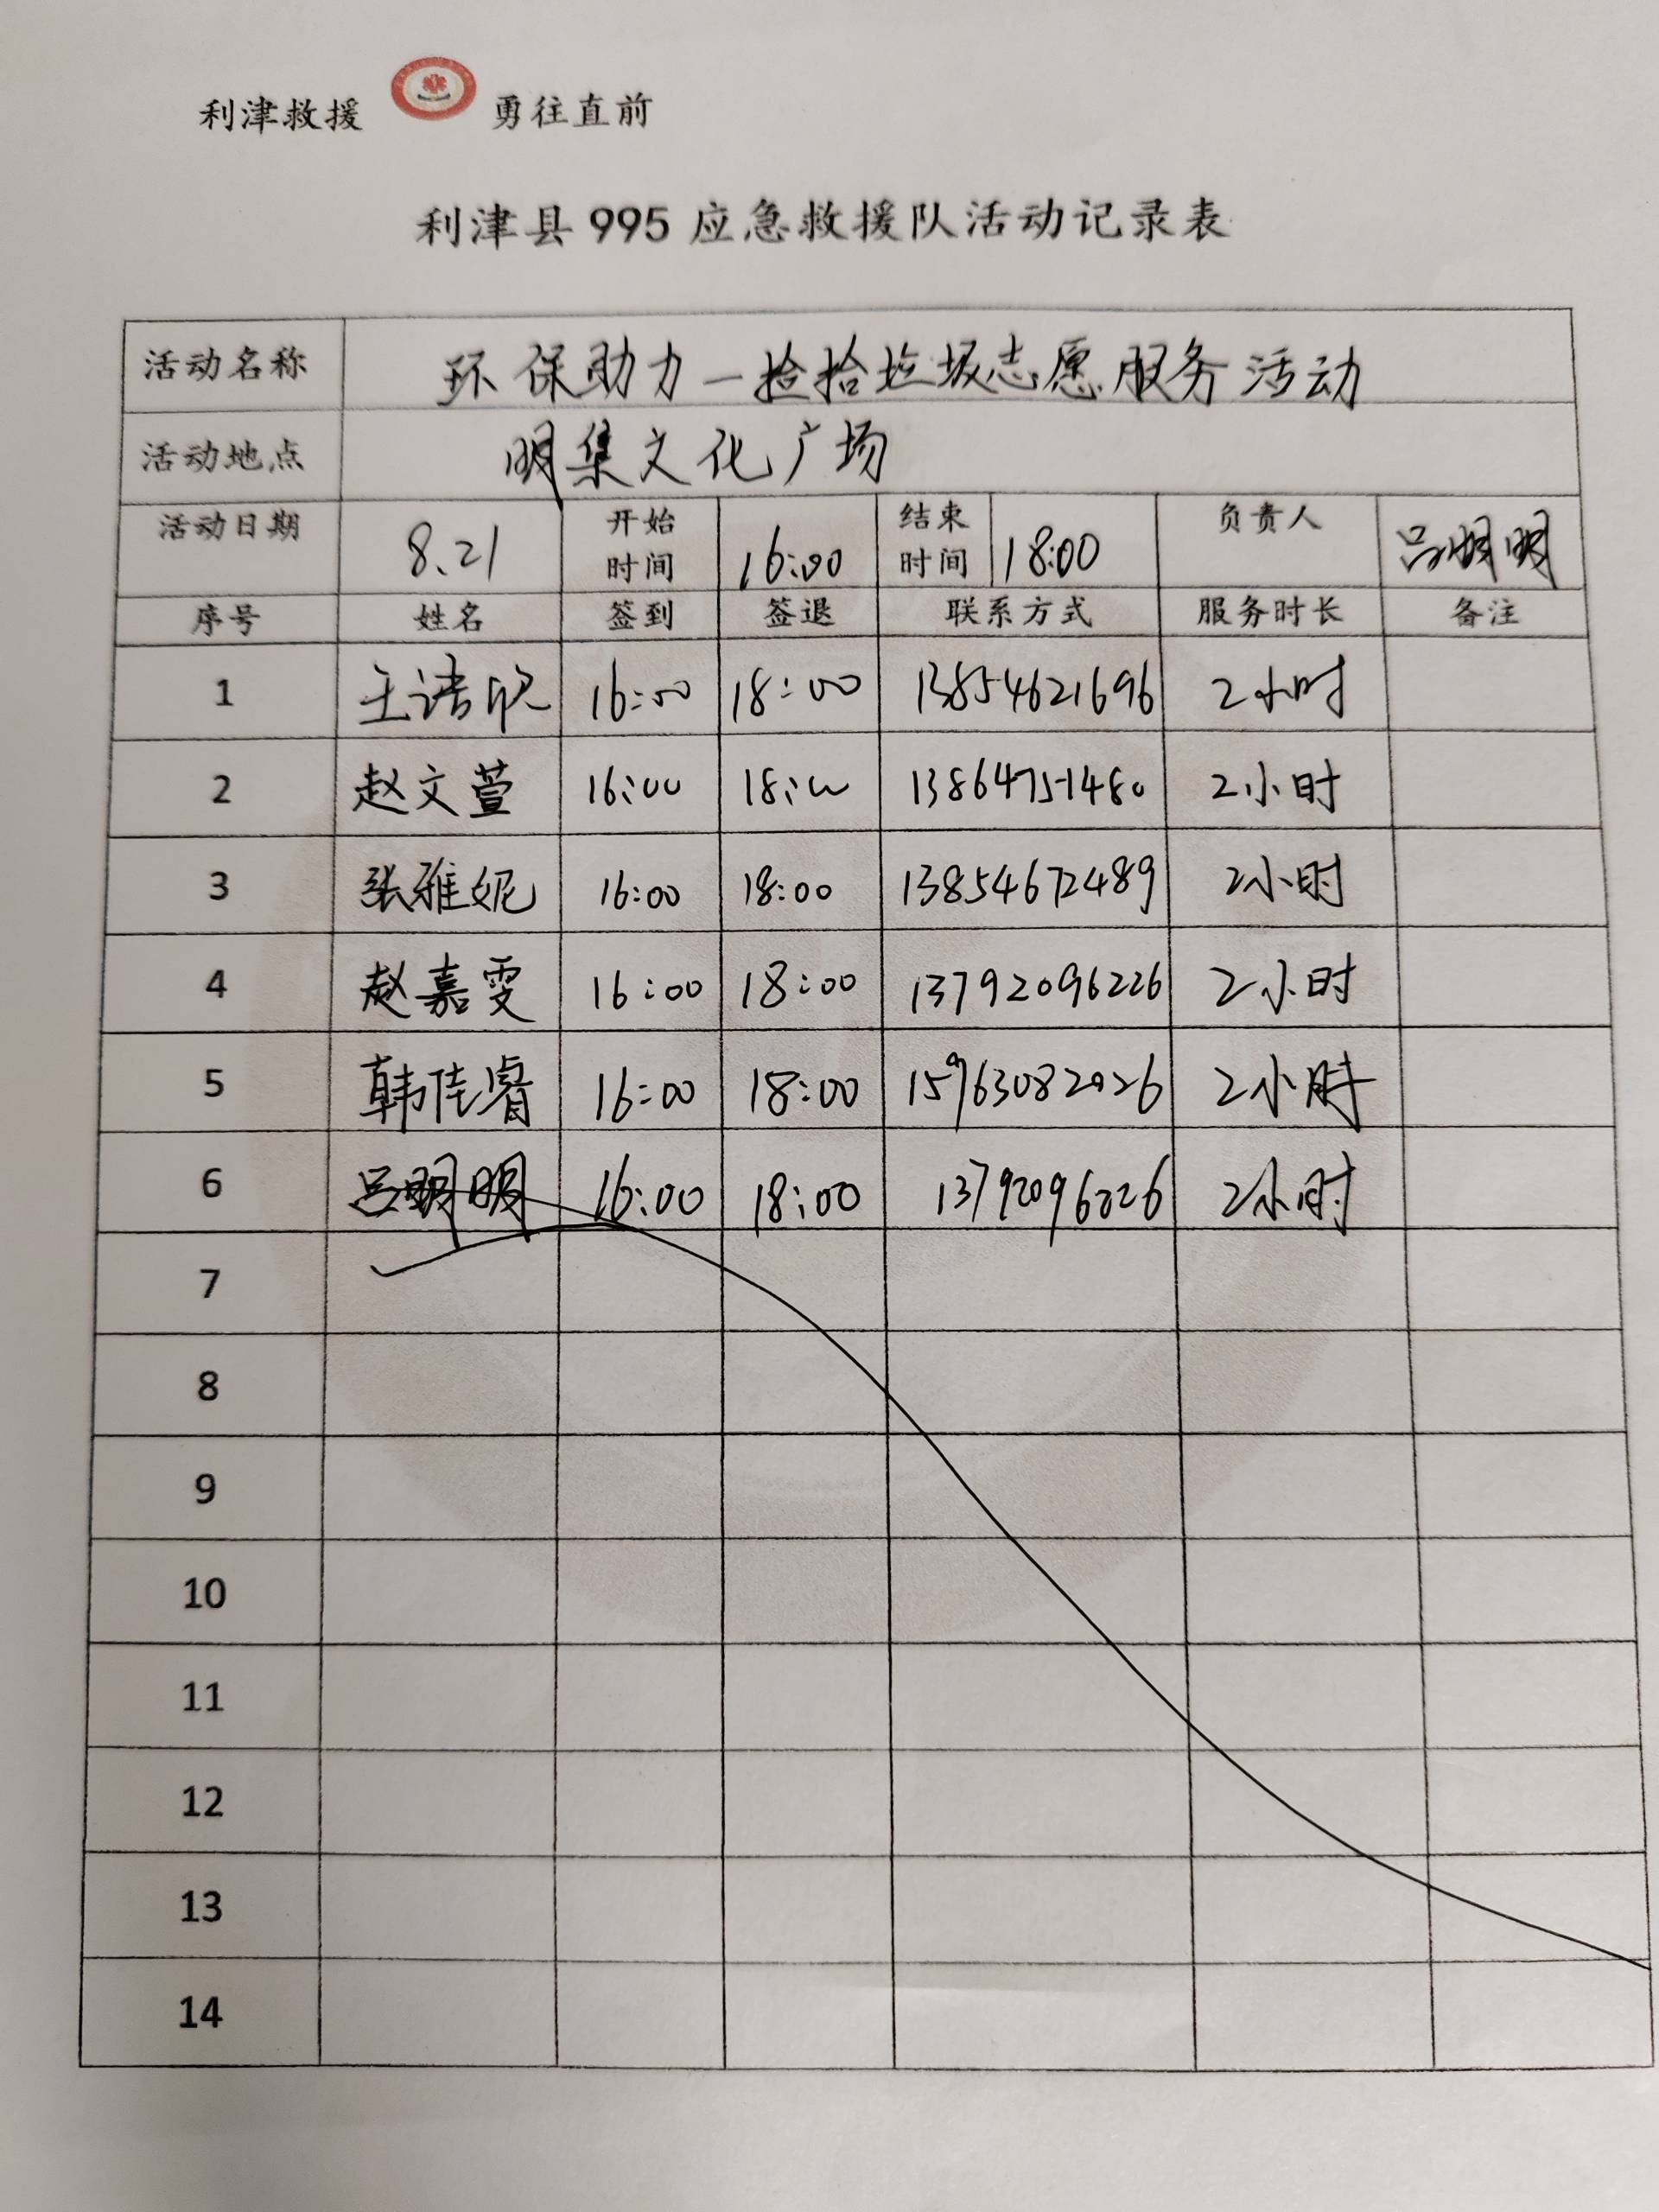 利津救援 勇往直前
利津县995应急救援队活动记录表
活动名称 环保助力—捡拾垃圾志愿服务活动
活动地点 明集文化广场
活动日期 8.21 开始时间 16:00 结束时间 18:00 负责人 吕明明
序号 姓名 签到 签退 联系方式 服务时长 备注
1 王诺欣 16:00 18:00 13854621696 2小时
2 赵文萱 16:00 18:00 13864751480 2小时
3 张雅妮 16:00 18:00 13854672489 2小时
4 赵嘉雯 16:00 18:00 13792096226 2小时
5 韩佳睿 16:00 18:00 15963082026 2小时
6 吕明明 16:00 18:00 13792096226 2小时
7
8
9
10
11
12
13
14